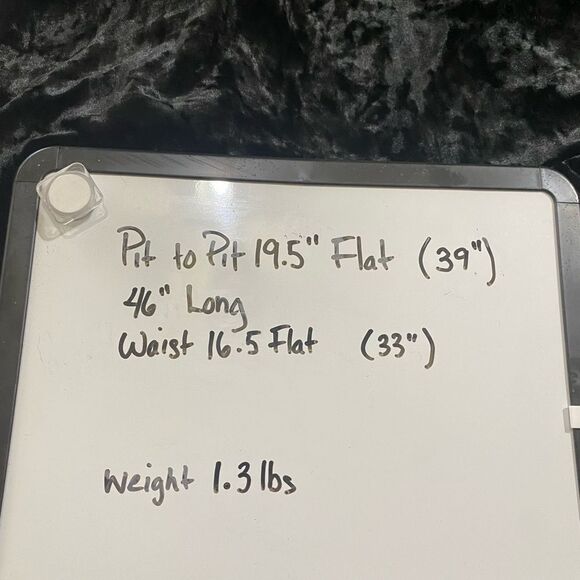 Pit to Pit 19.5" Flat (39")
46" Long
Waist 16.5 Flat (33")
Weight 1.3 lbs